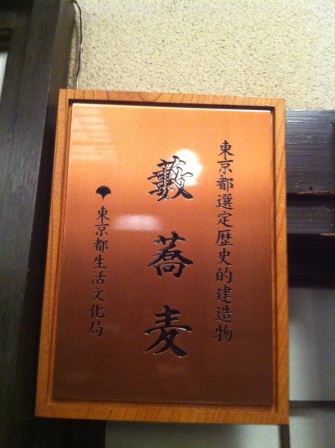 東京都選定歴史的建造物
藪蕎麦
東京都生活文化局